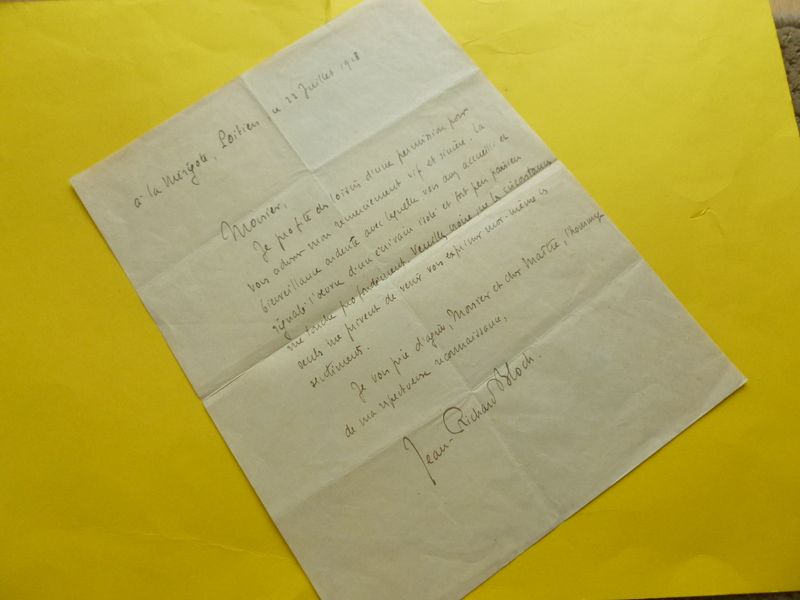 à la Mérigote, Poitiers, le 22 Juillet 1918
Monsieur,
Je profite des loisirs d'une permission pour
vous adresser mon remerciement vif et sincère. La
bienveillance ardente avec laquelle vous avez accueilli et
signalé l'œuvre d'un écrivain isolé et fort peu parisien
me touche profondément. Veuillez croire que les circonstances
seules me privent de venir vous exprimer moi-même ces
sentiments.
Je vous prie d'agréer, Monsieur et cher Maître, l'hommage
de ma respectueuse reconnaissance,
Jean-Richard Bloch.